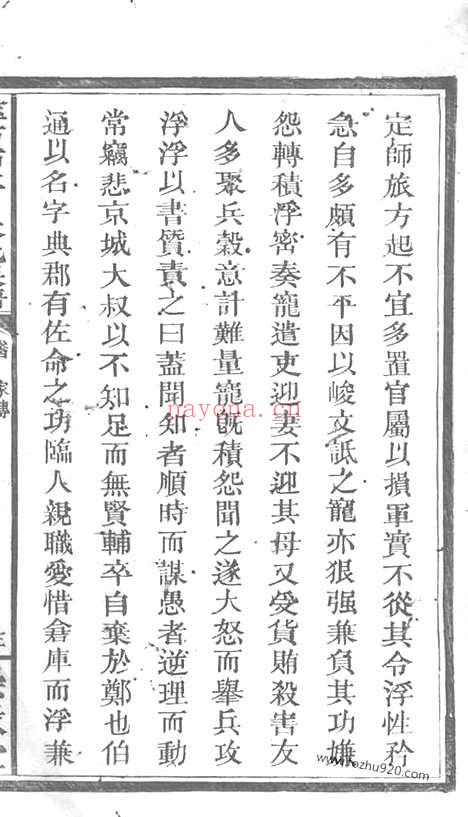 定師旅方起不宜多置官屬以損軍實不從其令浮性矜
急自多頗有不平因以峻文詆之寵亦狠强兼負其功嫌
怨轉積浮密奏寵遣吏迎妻不迎其母又受貨賄殺害友
人多聚兵穀意計難量寵旣積怨聞之遂大怒而舉兵攻
浮浮以書質責之曰蓋聞知者順時而謀愚者逆理而動
常竊悲京城大叔以不知足而無賢輔卒自棄於鄭也伯
通以名字典郡有佐命之功臨人親職愛惜倉庫而浮兼
家傳
nayona.cn
www.fozhu920.com